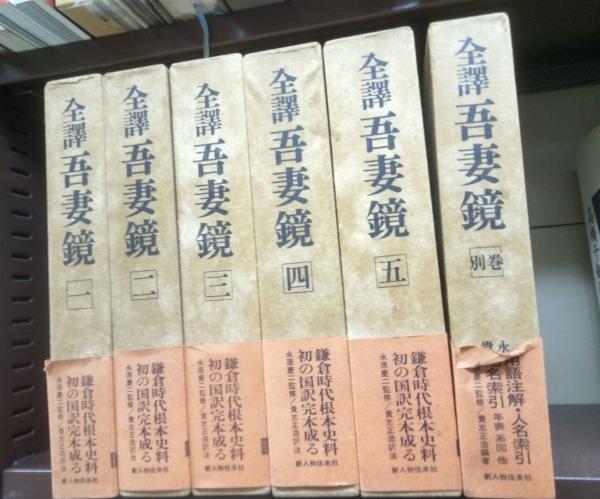 全譯 吾妻鏡 一
鎌倉時代根本史料
初の国訳完本成る
永原慶二監修/貴志正造訳注
新人物往来社
全譯 吾妻鏡 二
鎌倉時代根本史料
初の国訳完本成る
永原慶二監修/貴志正造訳注
新人物往来社
全譯 吾妻鏡 三
鎌倉時代根本史料
初の国訳完本成る
永原慶二監修/貴志正造訳注
新人物往来社
全譯 吾妻鏡 四
鎌倉時代根本史料
初の国訳完本成る
永原慶二監修/貴志正造訳注
新人物往来社
全譯 吾妻鏡 五
鎌倉時代根本史料
初の国訳完本成る
永原慶二監修/貴志正造訳注
新人物往来社
全譯 吾妻鏡 別巻
永
貴
用語注解・人名索引
名索引 年表 系図 他
永原慶二監修/貴志正造編著
新人物往来社